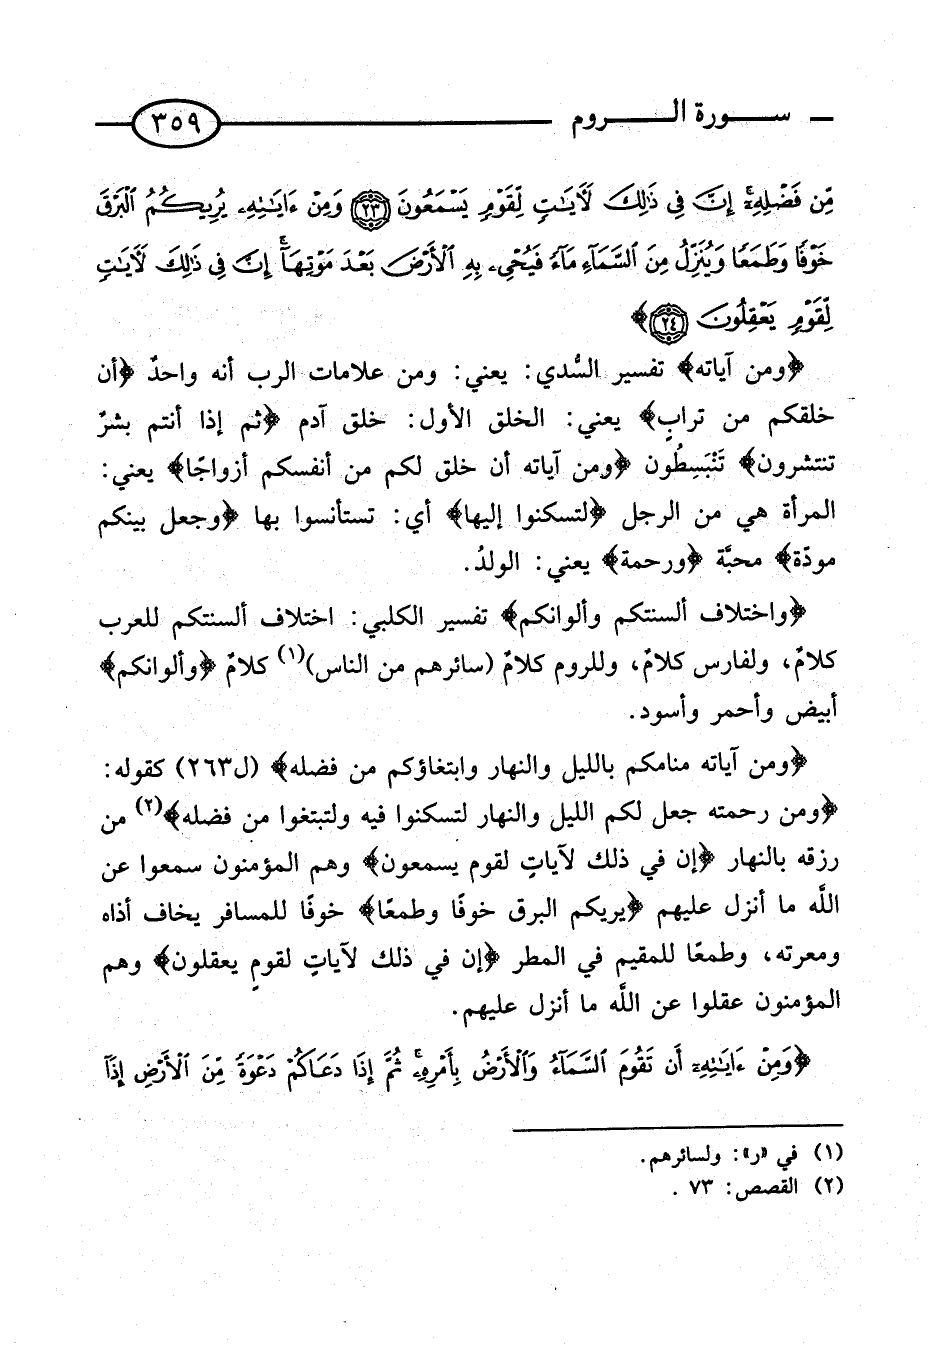 سـورة الـروم ٣٥٩
مِّن فَضْلِهِۦٓ إِنَّ فِى ذَٰلِكَ لَءَايَٰتٍ لِّقَوْمٍ يَسْمَعُونَ ۝٢٣ وَمِنْ ءَايَٰتِهِۦ يُرِيكُمُ ٱلْبَرْقَ
خَوْفًا وَطَمَعًا وَيُنَزِّلُ مِنَ ٱلسَّمَآءِ مَآءً فَيُحْىِۦ بِهِ ٱلْأَرْضَ بَعْدَ مَوْتِهَآ إِنَّ فِى ذَٰلِكَ لَءَايَٰتٍ
لِّقَوْمٍ يَعْقِلُونَ ۝٢٤﴾
﴿ومن آياته﴾ تفسير السُّدي: يعني: ومن علامات الرب أنه واحدٌ ﴿أن
خلقكم من ترابٍ﴾ يعني: الخلق الأول: خلق آدم ﴿ثم إذا أنتم بشرٌ
تنتشرون﴾ تَنْبَسِطُون ﴿ومن آياته أن خلق لكم من أنفسكم أزواجًا﴾ يعني:
المرأة هي من الرجل ﴿لتسكنوا إليها﴾ أي: تستأنسوا بها ﴿وجعل بينكم
مودّة﴾ محبَّة ﴿ورحمة﴾ يعني: الولدُ.
﴿واختلاف ألسنتكم وألوانكم﴾ تفسير الكلبي: اختلاف ألسنتكم للعرب
كلامٌ، ولفارس كلامٌ، وللروم كلامٌ (سائرهم من الناس)(١) كلامٌ ﴿وألوانكم﴾
أبيض وأحمر وأسود.
﴿ومن آياته منامكم بالليل والنهار وابتغاؤكم من فضله﴾ (ل٢٦٣) كقوله:
﴿ومن رحمته جعل لكم الليل والنهار لتسكنوا فيه ولتبتغوا من فضله﴾(٢) من
رزقه بالنهار ﴿إن في ذلك لآياتٍ لقوم يسمعون﴾ وهم المؤمنون سمعوا عن
اللَّه ما أنزل عليهم ﴿يريكم البرق خوفًا وطمعًا﴾ خوفًا للمسافر يخاف أذاه
ومعرته، وطمعًا للمقيم في المطر ﴿إن في ذلك لآياتٍ لقومٍ يعقلون﴾ وهم
المؤمنون عقلوا عن اللَّه ما أنزل عليهم.
﴿وَمِنْ ءَايَٰتِهِۦٓ أَن تَقُومَ ٱلسَّمَآءُ وَٱلْأَرْضُ بِأَمْرِهِۦ ثُمَّ إِذَا دَعَاكُمْ دَعْوَةً مِّنَ ٱلْأَرْضِ إِذَآ
(١) في «ر»: ولسائرهم.
(٢) القصص: ٧٣ .